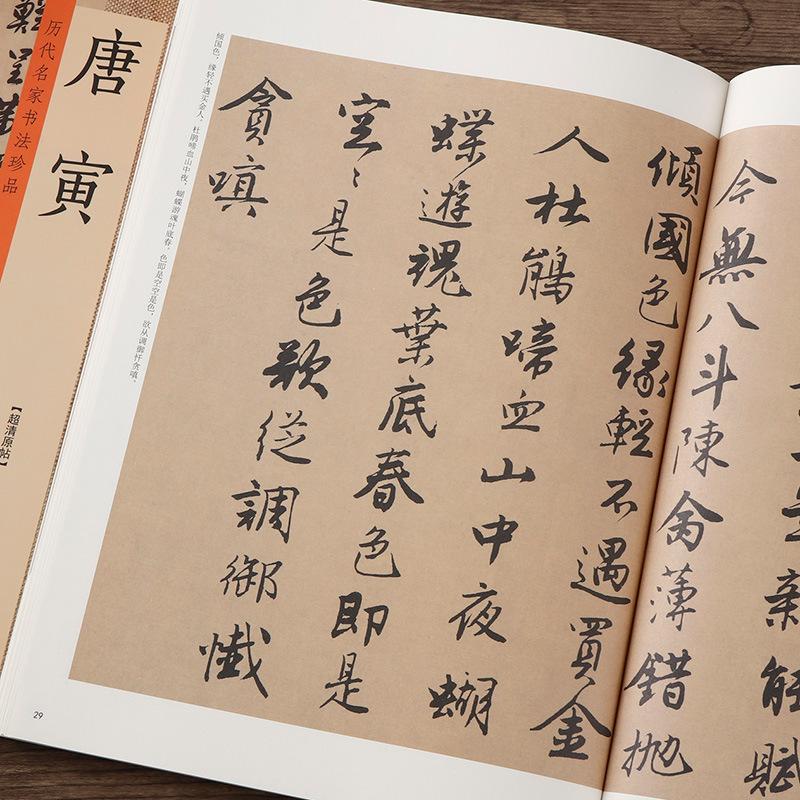 唐寅
历代名家书法珍品
【超清原帖】
今無八斗陳禽薄錯抛
傾國色緣輕不遇買金
人杜鵑啼血山中夜蝴
蝶遊魂葉底春色即是
空〻是色欲從調御懺
貪嗔
倾国色，缘轻不遇买金人。杜鹃啼血山中夜，蝴蝶游魂叶底春。色即是空空是色，欲从调御忏贪嗔。
29